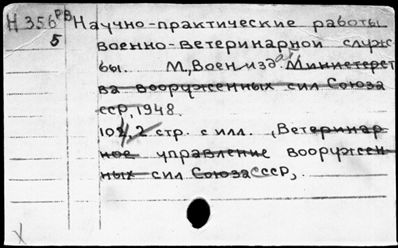 Н 356 РВ Научно-практические работы
5 военно-ветеринарной служ
бы. М, Воениздат Министерст
ва вооруженных сил Союза
ССР, 1948.
104, 2 стр. с илл. (Ветеринар
ное управление вооружен
ных сил Союза СССР),